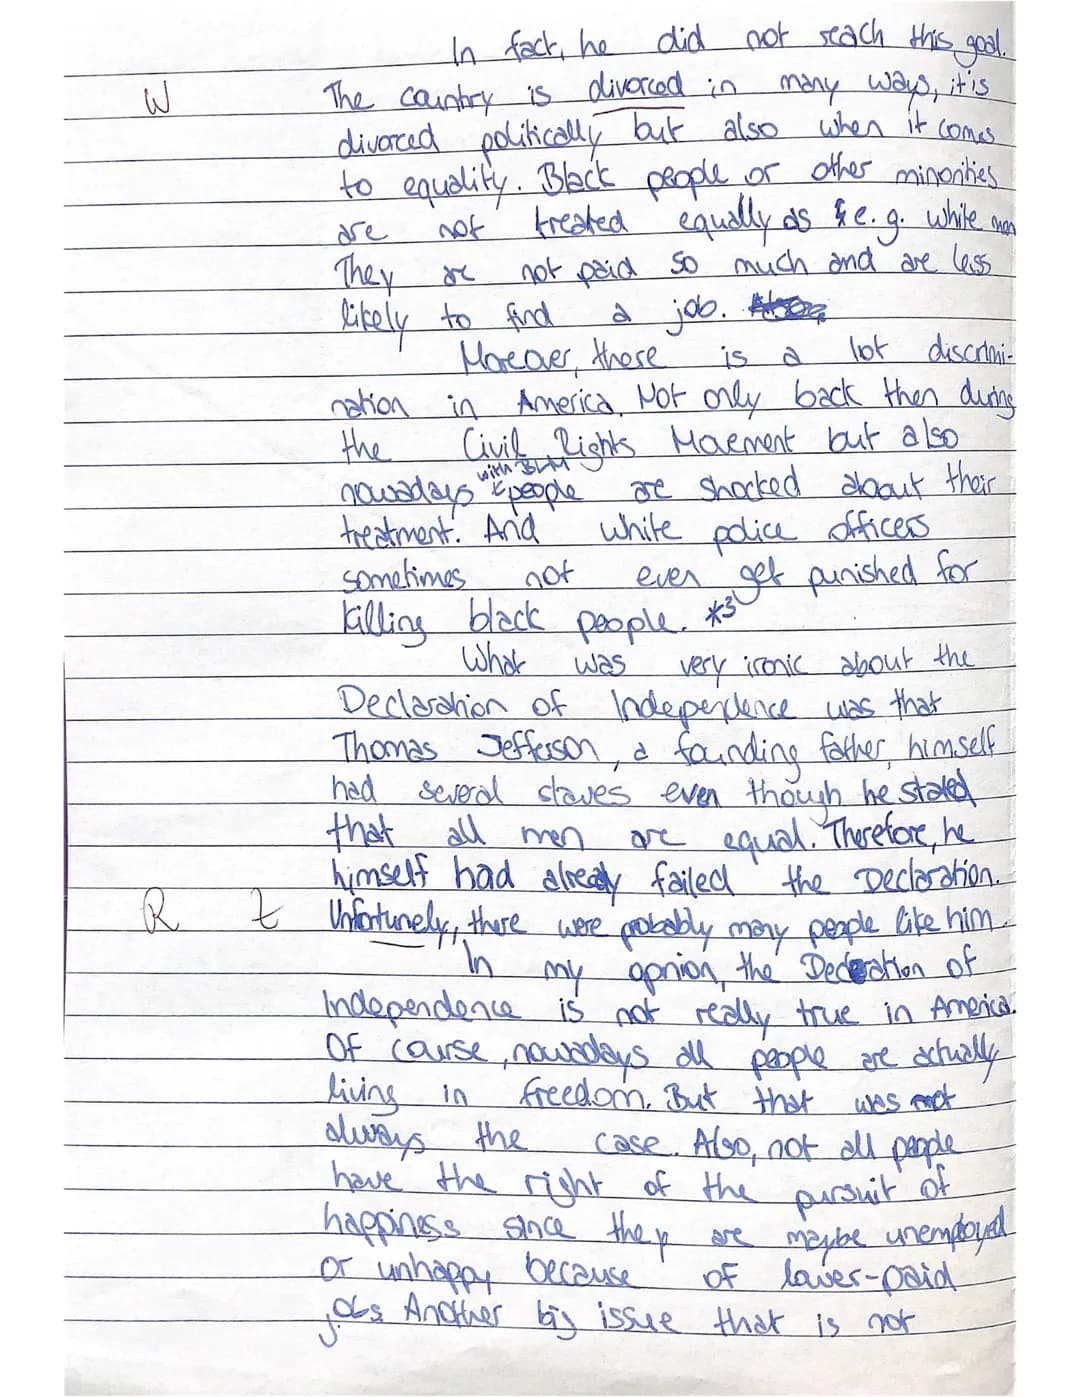 In fact, he did not reach this goal.
W The country is divorced in many ways, it is
divorced politically but also when it comes
to equality. Black people or other minorities
are not treated equally as e.g. white men
They are not paid so much and are less
likely to find a job.
Moreover, there is a lot discrimi-
nation in America. Not only back then during
the Civil Rights Movement but also
with BLM
nowadays people are shocked about their
treatment. And white police officers
sometimes not even get punished for
killing black people. *3
What was very ironic about the
Declaration of Independence was that
Thomas Jefferson, a founding father, himself
had several slaves even though he stated
that all men are equal. Therefore, he
himself had already failed the Declaration.
R Z Unfortunely, there were probably many people like him.
In my opnion, the Declaration of
Independence is not really true in America.
Of course, nowadays all people are actually
living in freedom. But that was not
always the case. Also, not all people
have the right of the pursuit of
happiness since they are maybe unemployed
or unhappy because of lower-paid
jobs. Another big issue that is not